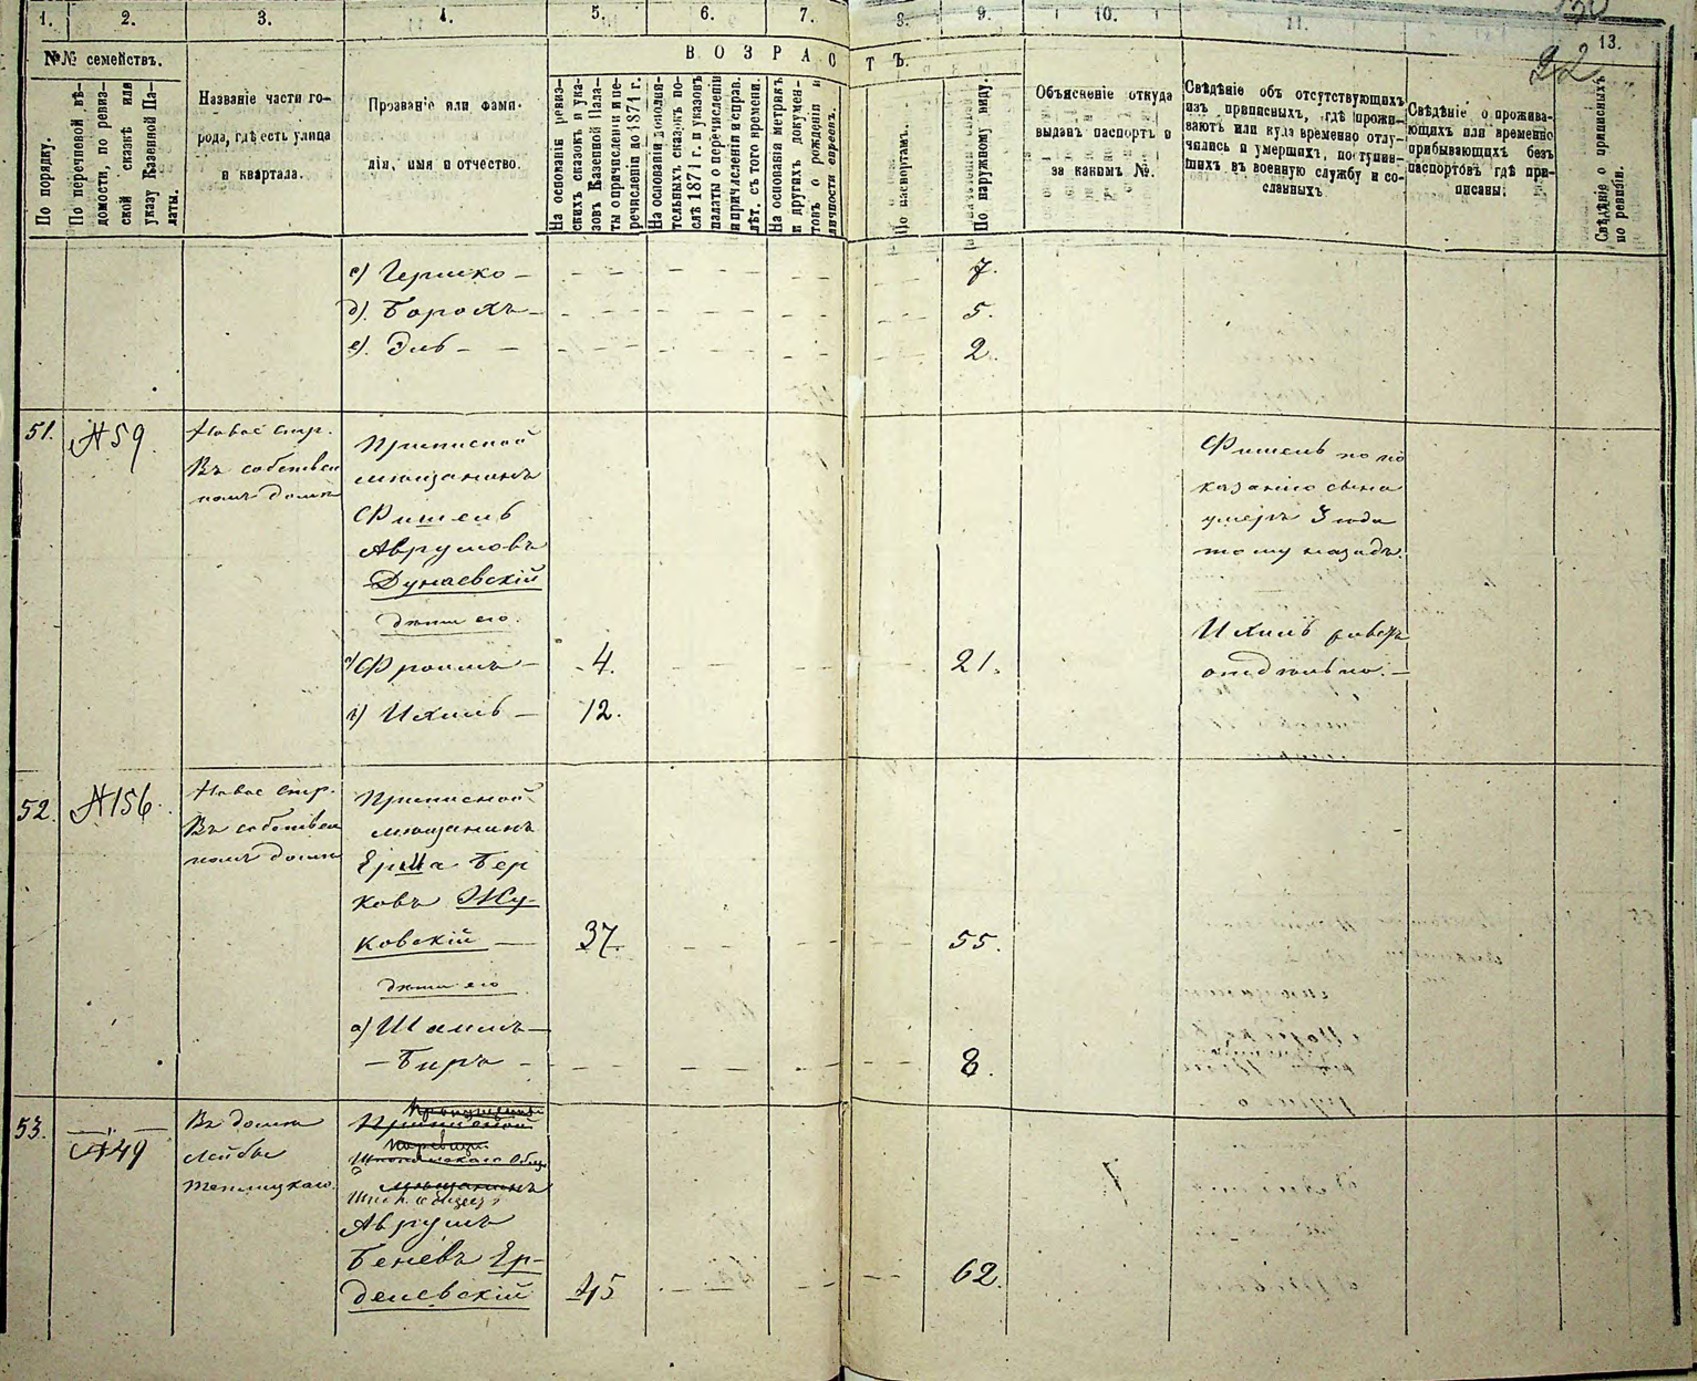 130
22
1. 2. 3. 4. 5. 6. 7. 8. 9. 10. 11. 13.
№№ семействъ.
По порядку.
По перечневой вѣ-
домости, по ревиз-
ской сказкѣ или
указу Казенной Па-
латы.
Названіе части го-
рода, гдѣ есть улица
и квартала.
Прозваніе или фами-
лія, имя и отчество.
ВОЗРАСТЪ.
На основаніи ревиз-
скихъ сказокъ и ука-
зовъ Казенной Пала-
ты о причисленіи и пе-
речисленіи до 1871 г.
На основаніи дополни-
тельныхъ сказокъ по-
слѣ 1871 г. и указовъ
палаты о перечисленіи
и причисленіи и справ.
лѣт. съ того времени.
На основаніи метрикъ
и другихъ докумен-
товъ о рожденіи и
личности евреевъ.
По паспортамъ.
По наружному виду.
Объясненіе откуда
выданъ паспортъ и
за какимъ №.
Свѣдѣніе объ отсутствующихъ
изъ приписныхъ, гдѣ прожи-
ваютъ или куда временно отлу-
чились и умершихъ, поступив-
шихъ въ военную службу и со-
сланныхъ
Свѣдѣніе о прожива-
ющихъ или временно
прибывающихъ безъ
паспортовъ гдѣ при-
писаны.
Свѣдѣніе о приписныхъ
по ревизіи.
с) Гершко — 7.
д). Борохъ — 5.
е). Эль — 2.
51. №59
Новое стр.
Въ собствен
номъ домѣ
Приписной
мѣщанинъ
Фишель
Аврумовъ
Дунаевскій
дѣти его.
а) Фроимъ — 4. 21.
в) Ихиль — 12.
Фишель по по
казанію сына
умеръ 3 года
тому назадъ.
Ихиль живетъ
отдѣльно. —
52. №156.
Новое стр.
Въ собствен
номъ домѣ
Приписной
мѣщанинъ
Ершка Бер
ковъ Жу-
ковскій — 37. 55.
дѣти его
а) Шлиомъ —
— Биръ — 8.
53. №49
Въ домѣ
Лейбы
Теплицкаго.
Приписной
мѣщанинъ
Аврумъ
Беневъ Ер-
дешевскій 45 62.